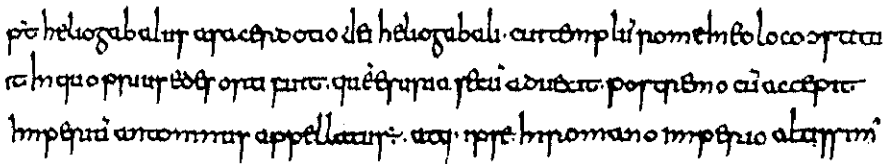 p̄t heliogabalus asacerdotio dei heliogabali· cui templū rome ineoloco ↄstitu
it inquo prius edes orta fuit· quē esuria secū aduexit· postremo cū accepit
imperiū antoninus appellatus ÷· atq· ipse inromano imperio altissim'